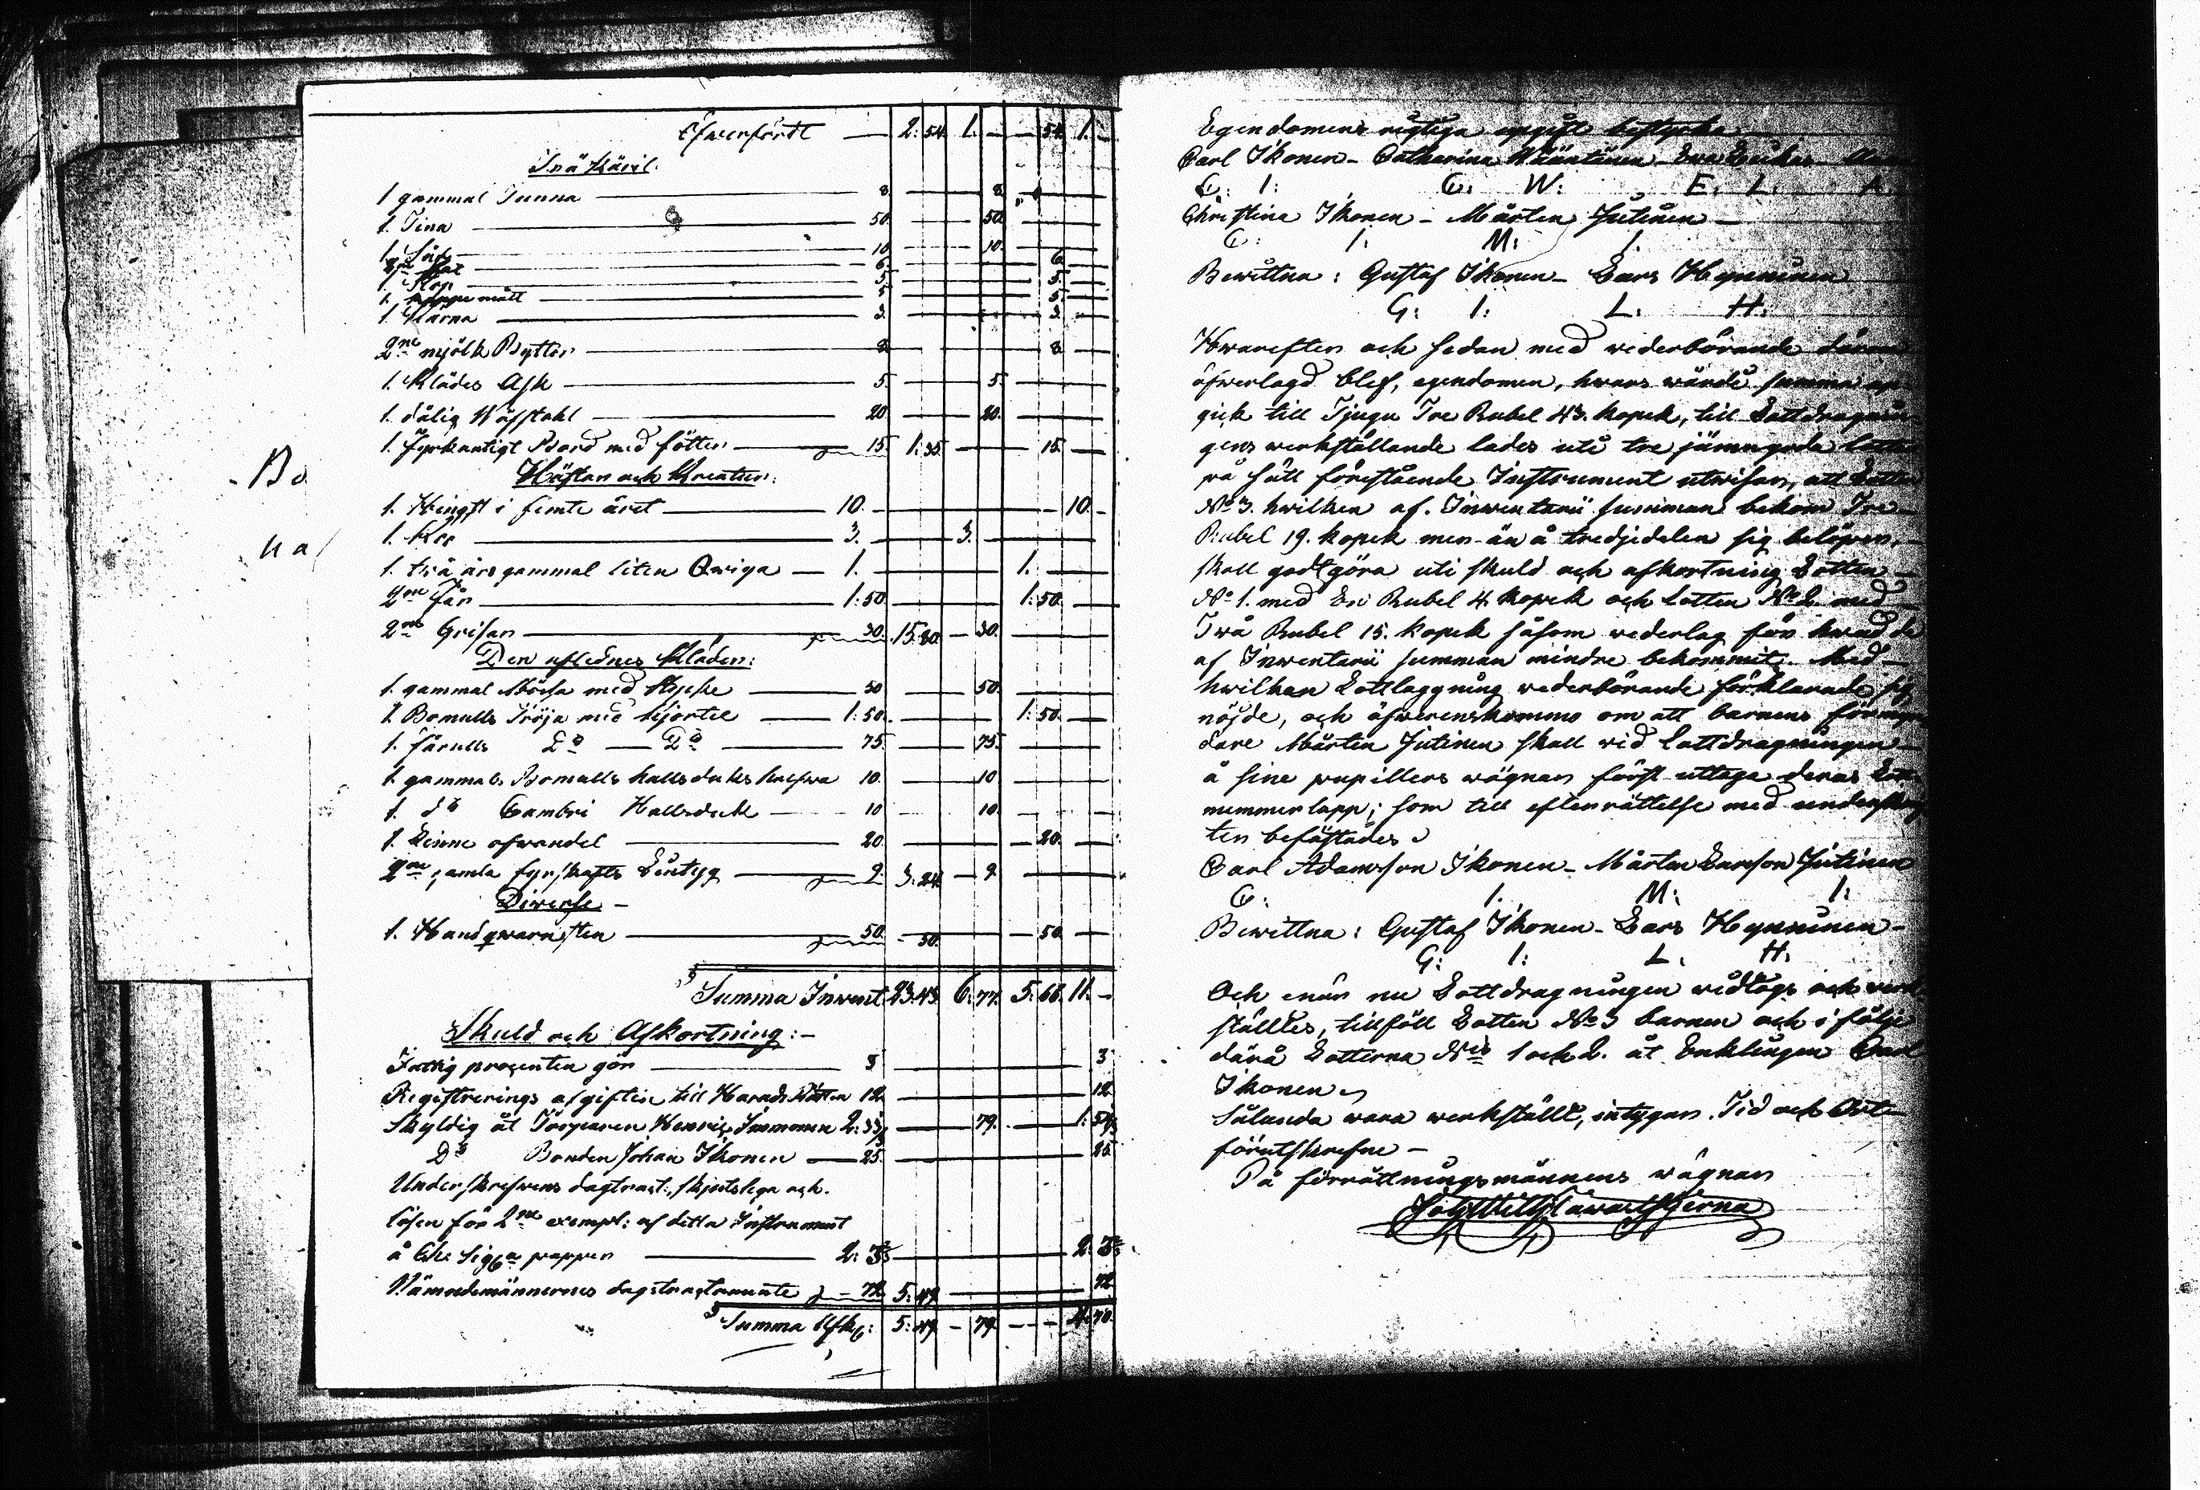 Öfwerfördt — 2:54. 1. — — 54. 1. —
Trä Käril.
1 gammal Tunna — 8. — 8.
1. Tina — 50. — 50.
1. Såg — 10. — 10.
6. — 6.
1. Stop — 5. — 5.
1. kappe mått — 5. — 5.
1. Kärna — 3. — 3.
2ne mjölk Byttor — 8. — 8.
1. Klädes Ask — 5. — 5.
1. dålig Wäfstohl — 20. — 20.
1. fyrkantigt Bord med fötter — 15. 1:35. — 15.
Hästar och Kreatur:
1. Hingst i femte året — 10. — 10. —
1. Ko — 3. — 3. —
1. två års gammal liten Qwiga — 1. — 1. —
2ne Får — 1:50. — 1:50.
2ne Grisar — 30. 15:80. — 30. —
Den aflednes Kläder:
1. gammal Mössa med — 50 — 50. —
1. Bomulls Tröja med kjortel — 1:50. — 1:50. —
1. fårulls Do — Do — 75. — 75. —
1. gammal Bomulls hallsduk 10. — 10 —
1. do Cambri Hallsduk — 10 — 10. —
1. Linne ofwandel — 20. — 20. —
2ne gamla fyrskafts Lintyg — 9. 3:24. — 9. —
Diverse —
1. Handqwarnsten — 50. — 50. — 50. —
Summa Invent. 23:43. 6:77. 5:66. 11. —
Skuld och Afkortning: —
Fattig procenten gör — 3 — 3
Registrerings afgiften till Härads Rätten 12. — 12.
Skyldig åt Torparen Henric Immonen — 79. —
Do Bonden Johan Ikonen — 25. — 25.
Underskrefwens dagtract., skjutslega och
lösen för 2ne exempl: af detta Instrument
å papper — 2:
Nämndemännernes dagstractamente — 72. 5:49. — 72.
Summa Afk: 5:49. — 79. — — 4:70.
Bo
na
Egendomens rigtiga upgift bestyrka
Carl Ikonen — Catharina Wäänänen
C: I: C: W: E: L: A.
Christina Ikonen — Mårten Jutinen —
C: I: M: I.
Bewittna: Gustaf Ikonen — Lars Hynninen
G: I: L: H:
Hwarefter och sedan med wederbörande
öfwerlagd blef, egendomen, hwars wärde summa up
gick till Tjugu Tre Rubel 43. kopek, till Lottdragnin
gens werkställande lades uti tre jämngoda lotter
på sätt förestående Instrument utwisar, att Lotten
No 3. hwilken af Inventarii summan bekom Tre
Rubel 19. kopek mer än å tredjedelen sig belöper,
skall godtgöra uti skuld och afkortning Lotten —
No 1. med En Rubel 4 kopek och Lotten No 2. med —
Två Rubel 15. kopek såsom wederlag för hwad de
af Inventarii summan mindre bekommit. Med —
hwilken Lottläggning wederbörande förklarade sig
nöjde, och öfwerenskommo om att barnens förmyn
dare Mårten Jutinen skall wid Lottdragningen —
å sine pupillers wägnar först uttaga deras Lott
nummer lapp; som till efterrättelse med underskrif
ten befästades
Carl Adamsson Ikonen — Mårten Larsson Jutinen
C: I. M: I:
Bewittna: Gustaf Ikonen — Lars Hynninen —
G: I: L. H.
Och enär nu Lottdragningen widtogs och werk
ställdes, tillföll Lotten No 3 barnen och i följe
därå Lotterna No 1 och 2. åt Enklingen Carl
Ikonen
Sålunda wara werkställt, intygar. Tid och Ort
förutskrefne —
På förrättningsmännens wägnar